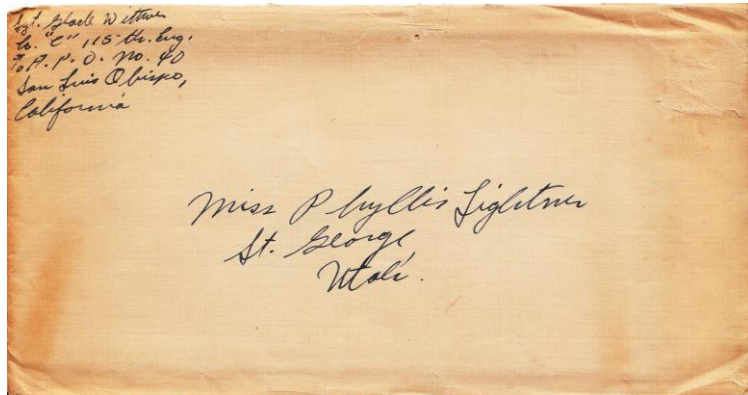 Sgt. Glade Wittwer
Co. "C" 115th. Eng.
℅ A. P. O. No. 40
San Luis Obispo,
California
Miss Phyllis Lightner
St. George
Utah.